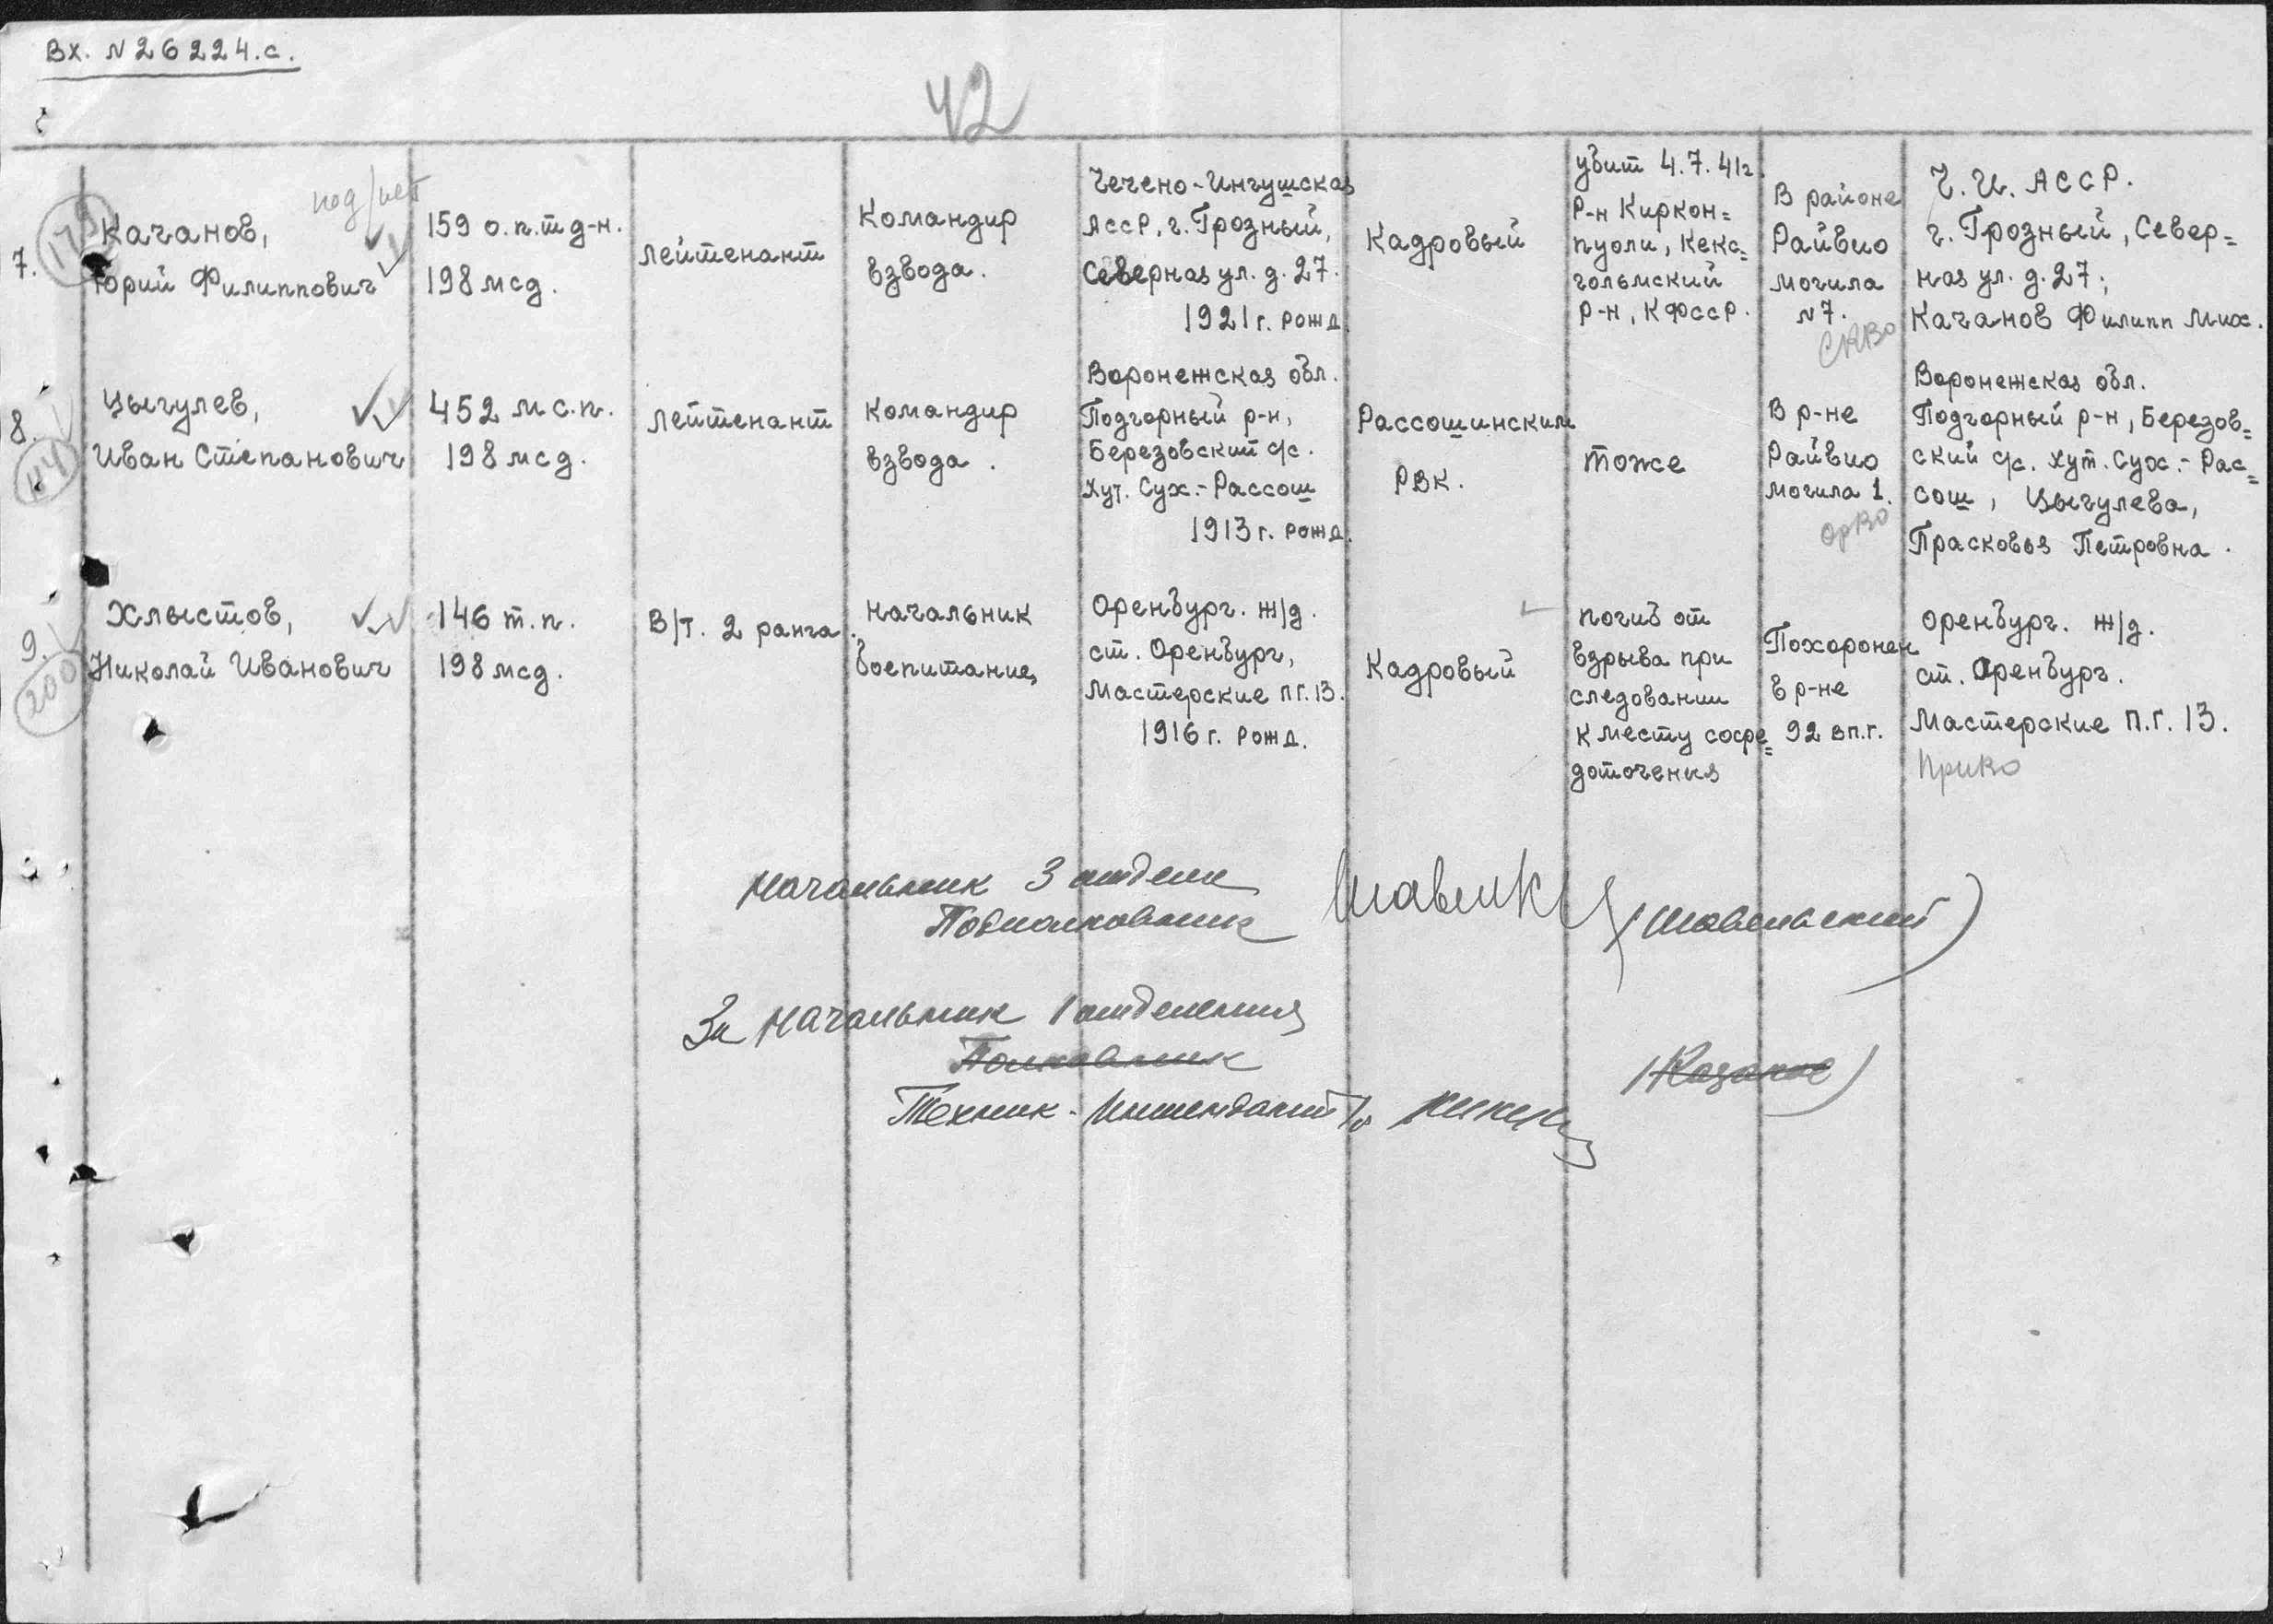 Вх. N 26224.с.
42
7.
Качанов,
Юрий Филиппович
159 о.п.т д-н.
198 мсд.
Лейтенант
Командир
взвода.
Чечено-Ингушская
АССР, г. Грозный,
Северная ул. д. 27.
1921 г. рожд.
Кадровый
убит 4.7.41г.
Р-н Киркон=
пуоли, Кекс=
гольмский
Р-н, КФССР.
В районе
Райвио
могила
N 7.
СКВО
Ч. И. АССР.
г. Грозный, Север=
ная ул. д. 27;
Качанов Филипп Мих.
8.
144
Цыгулев,
Иван Степанович
452 м с.п.
198 мсд.
Лейтенант
Командир
взвода.
Воронежская обл.
Подгорный р-н,
Березовский с/с.
Хут. Сух.-Рассош
1913 г. рожд.
Рассошинским
РВК.
тоже
В р-не
Райвио
могила 1.
ОрВО
Воронежская обл.
Подгорный р-н, Березов=
ский с/с. хут. Сух.-Рас=
сош, Цыгулева,
Прасковья Петровна.
9.
200
Хлыстов,
Николай Иванович
146 т.п.
198 мсд.
В/т. 2 ранга.
Начальник
боепитания
Оренбург. ж/д.
ст. Оренбург,
Мастерские п г. 13.
1916 г. рожд.
Кадровый
погиб от
взрыва при
следовании
к месту сосре=
доточения
Похоронен
в р-не
92 вп.г.
Оренбург. ж/д.
ст. Оренбург.
Мастерские п.г. 13.
ПриВО
Начальник 3 отдела
Подполковник
(Шавельский)
За Начальник 1 отделения
Полковник
(Казаков)
Техник-Интендант